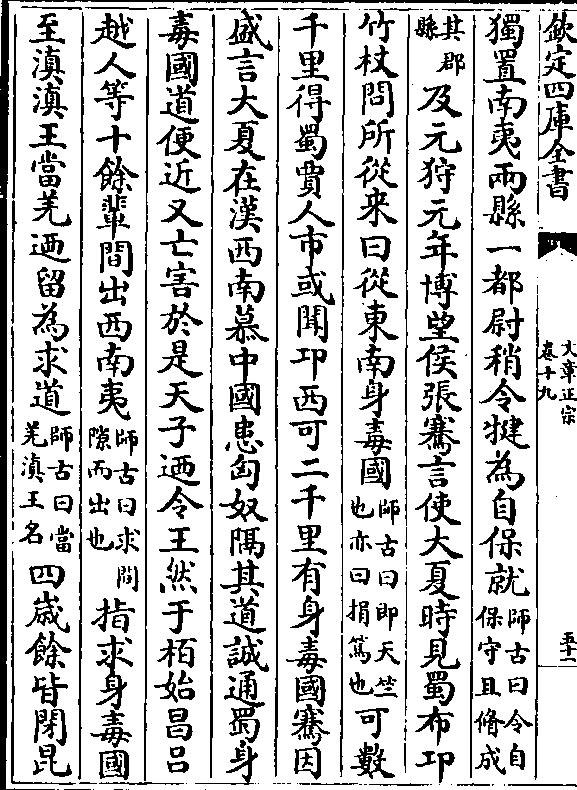 欽定四庫全書
文章正宗
卷十九
五十一
獨置南夷兩縣一都尉稍令犍為自保就師古曰令自保守且脩成
其郡縣及元狩元年博望侯張騫言使大夏時見蜀布卭
竹杖問所從来曰從東南身毒國師古曰即天竺也亦曰捐篤也可數
千里得蜀賈人市或聞卭西可二千里有身毒國騫因
盛言大夏在漢西南慕中國患匈奴隔其道誠通蜀身
毒國道便近又亡害於是天子迺令王然于栢始昌吕
越人等十餘輩間出西南夷師古曰求間隙而出也指求身毒國
至滇滇王當羌迺留為求道師古曰當羌滇王名四歲餘皆閉昆